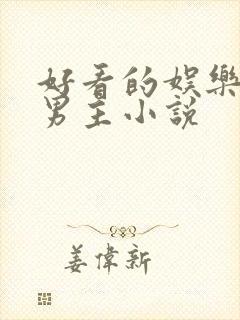 好看的娱樂
男主小說
姜偉新